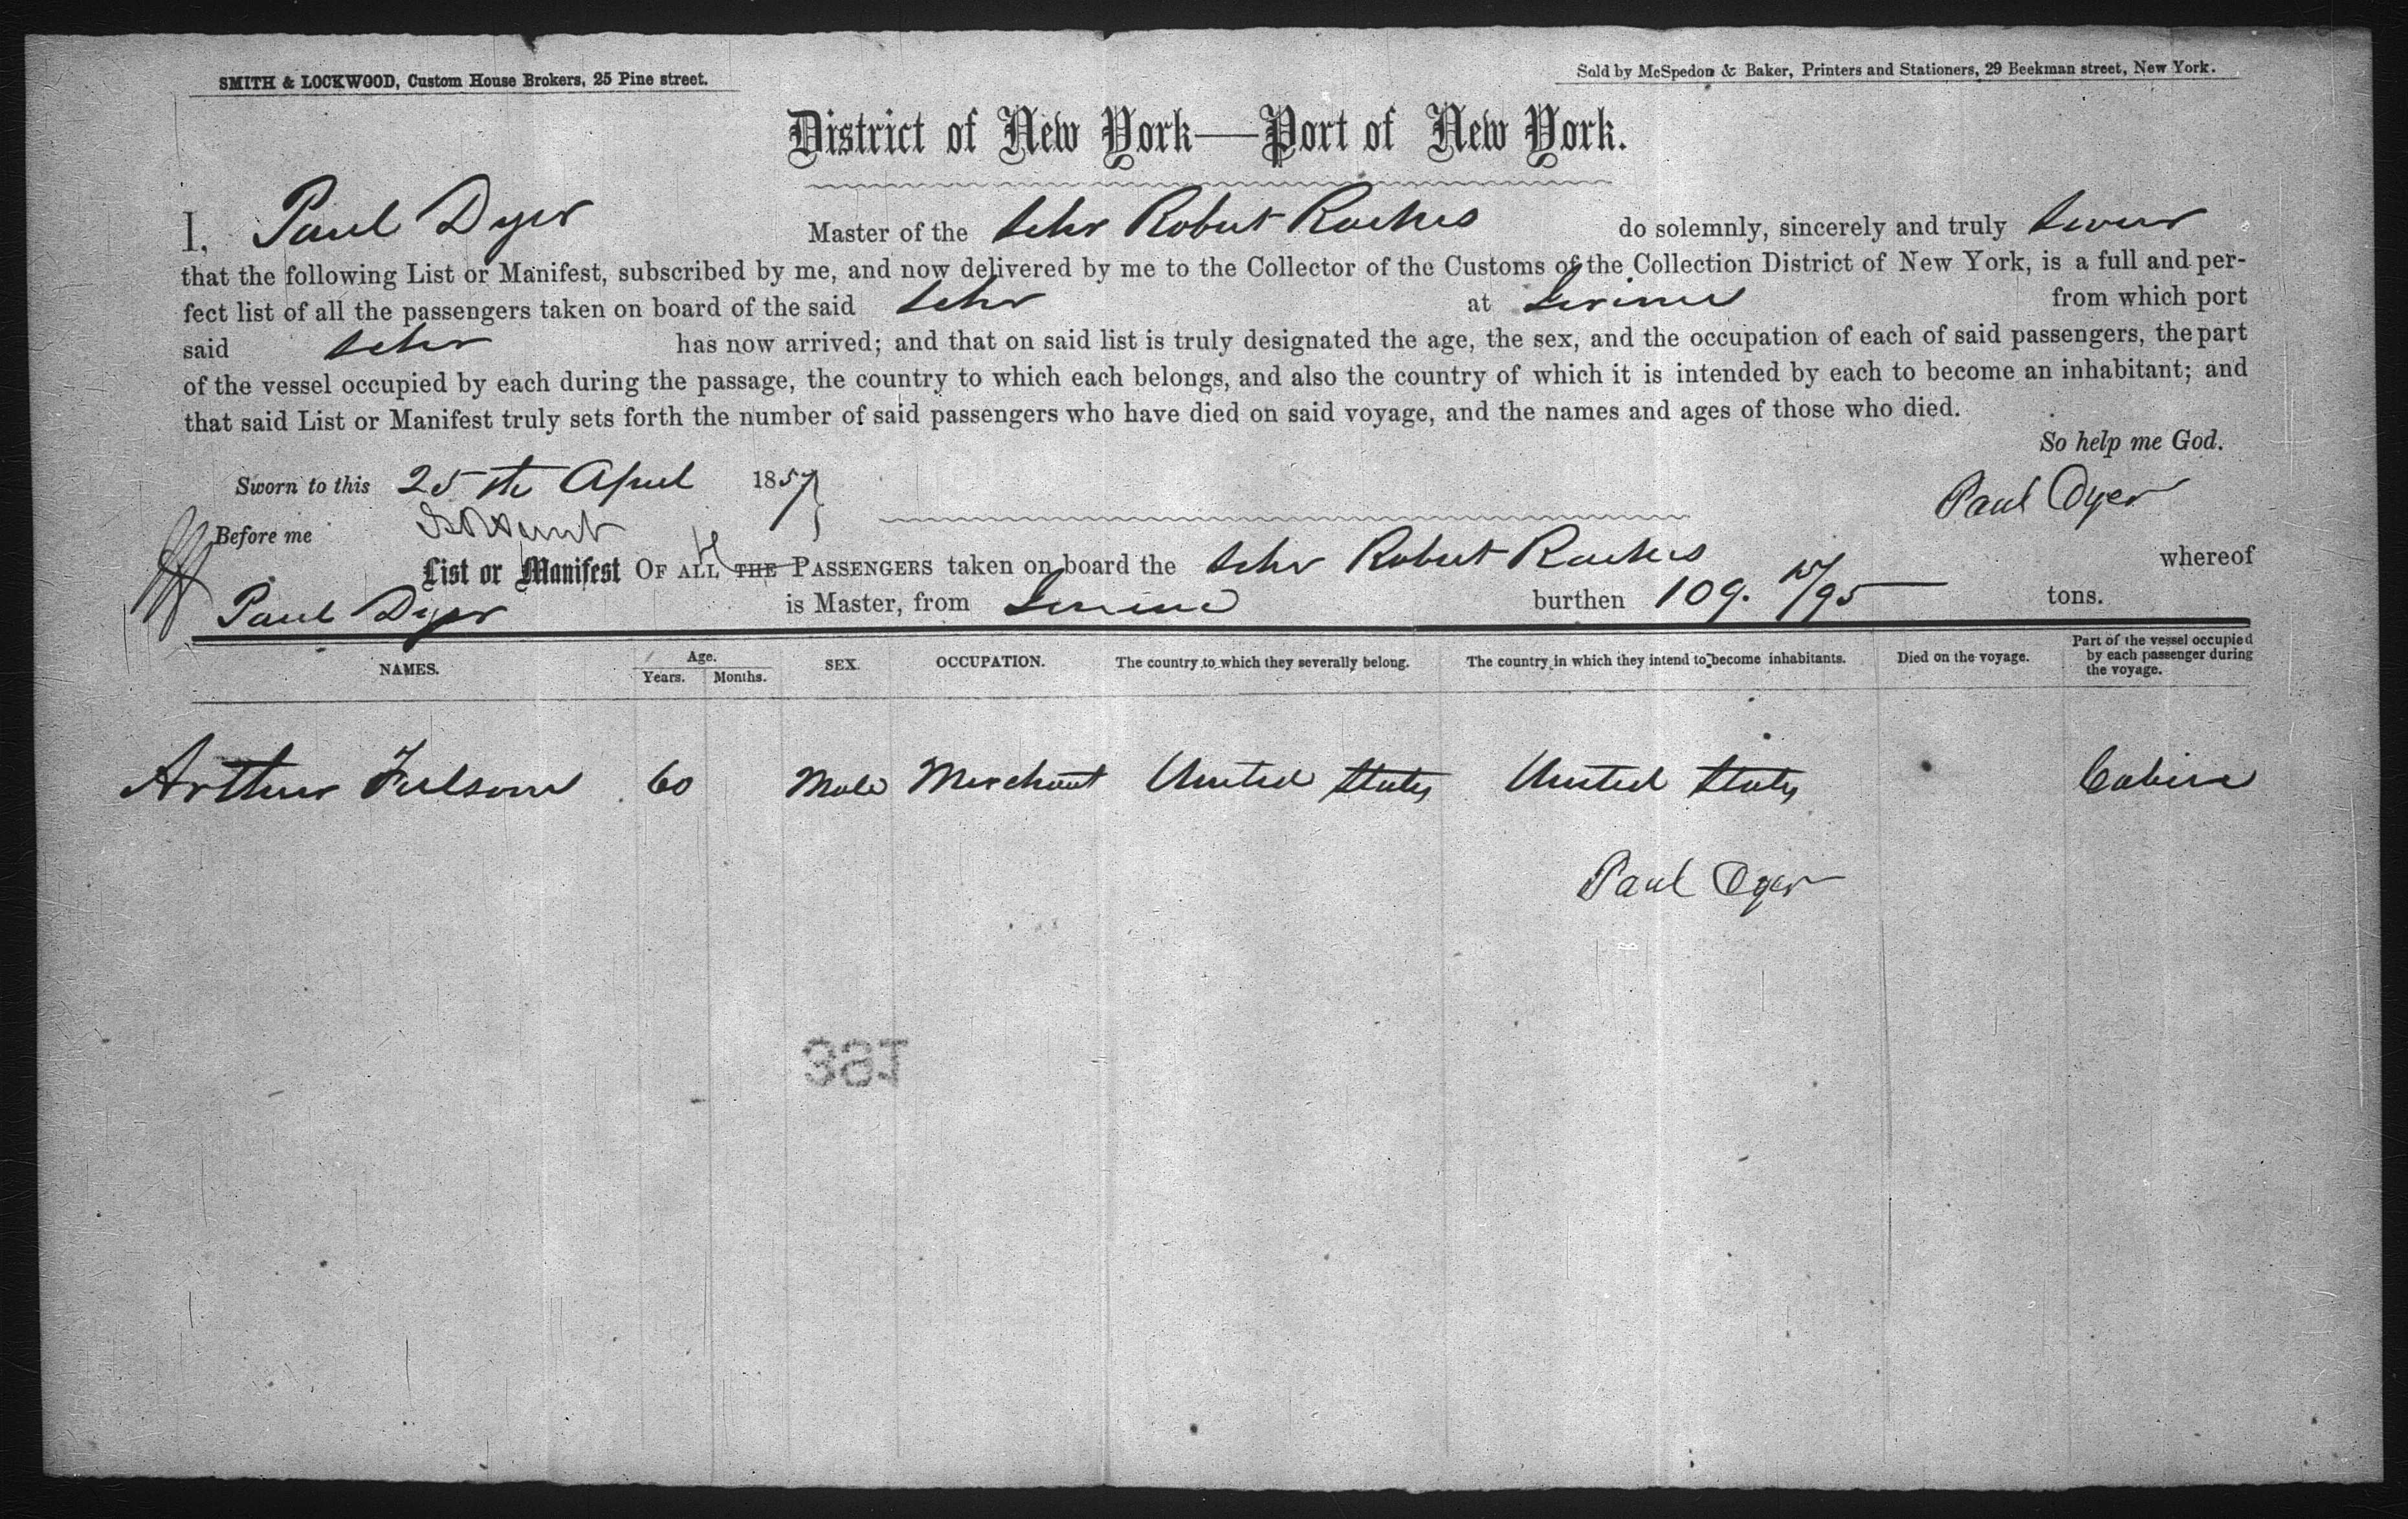 SMITH & LOCKWOOD, Custom House Brokers, 25 Pine street.
Sold by McSpedon & Baker, Printers and Stationers, 29 Beekman street, New York.
District of New York—Port of New York.
I, Paul Dyer Master of the Schr Robert do solemnly, sincerely and truly swear
that the following List or Manifest, subscribed by me, and now delivered by me to the Collector of the Customs of the Collection District of New York, is a full and per-
fect list of all the passengers taken on board of the said Schr at from which port
said Schr has now arrived; and that on said list is truly designated the age, the sex, and the occupation of each of said passengers, the part
of the vessel occupied by each during the passage, the country to which each belongs, and also the country of which it is intended by each to become an inhabitant; and
that said List or Manifest truly sets forth the number of said passengers who have died on said voyage, and the names and ages of those who died.
So help me God.
Sworn to this 25th April 1857
Paul Dyer
Before me
List or Manifest OF ALL THE PASSENGERS taken on board the Schr Robert whereof
Paul Dyer is Master, from burthen 109. /95 tons.
NAMES. Age. Years. Months. SEX. OCCUPATION. The country to which they severally belong. The country in which they intend to become inhabitants. Died on the voyage. Part of the vessel occupied by each passenger during the voyage.
Arthur 60 Male Merchant United States United States Cabin
Paul Dyer